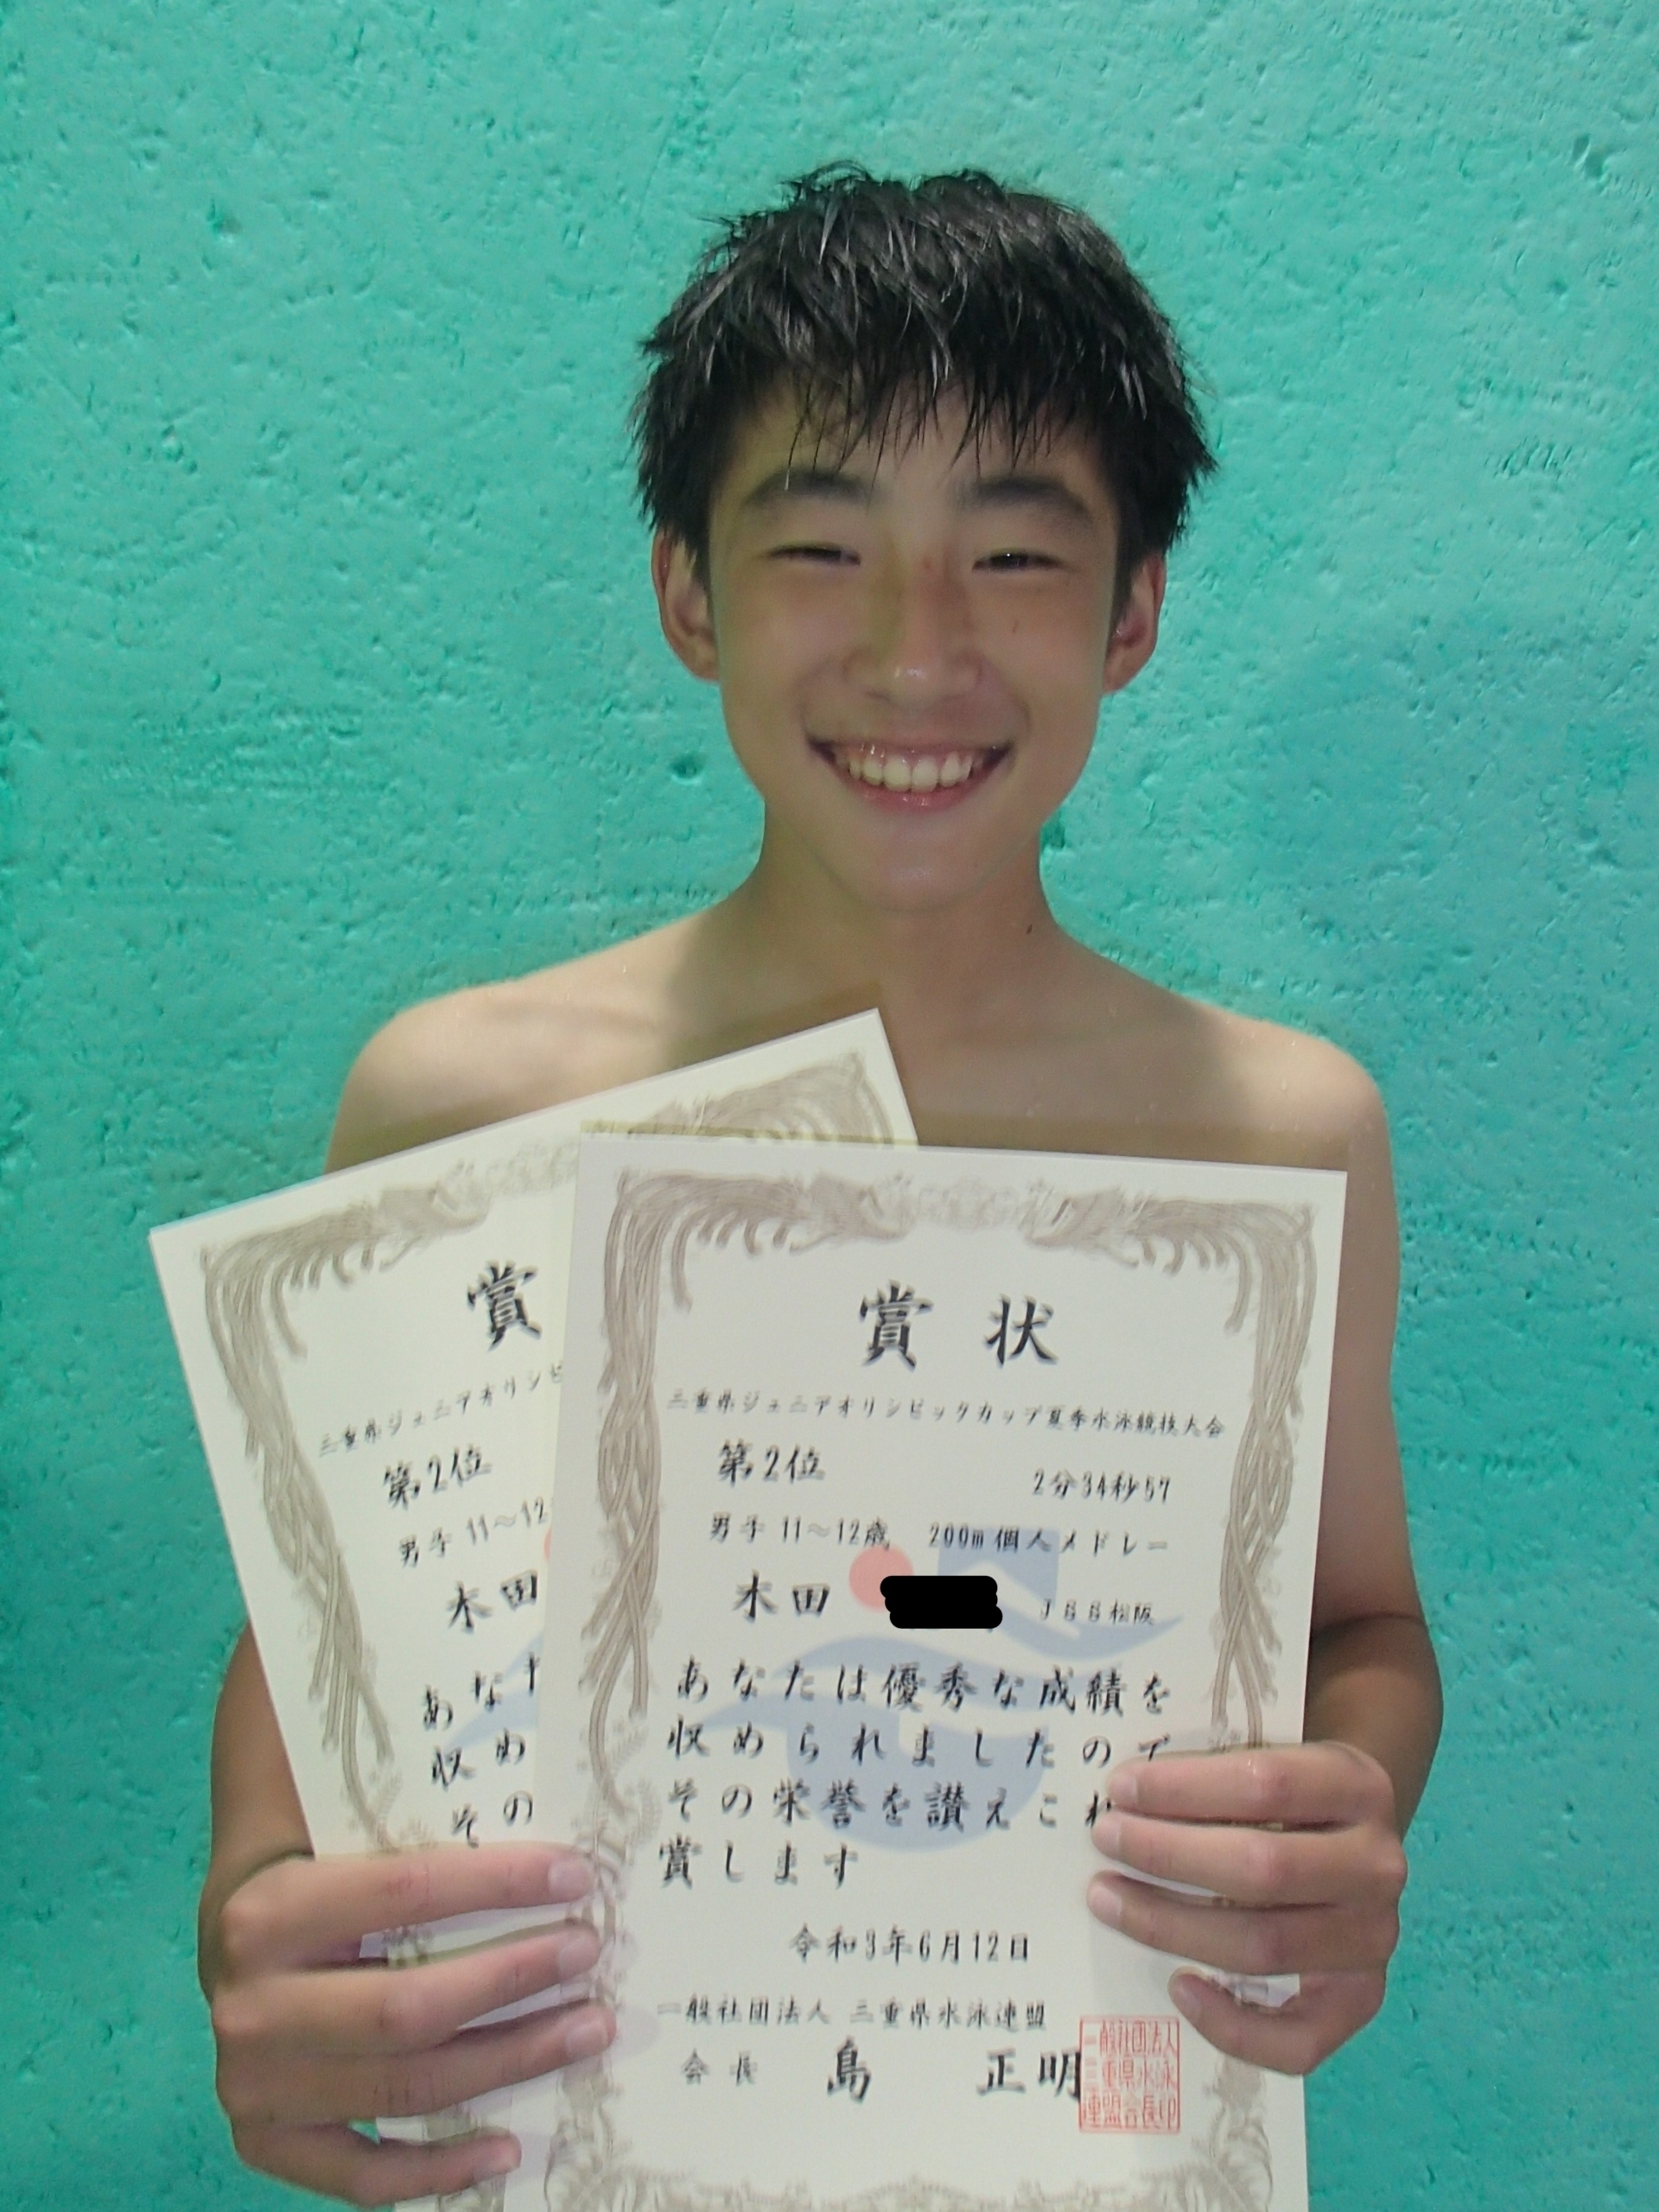 賞
三重県ジュニアオリンピ
第2位
男子 11～12
木田
あなた
収め
その
賞 状
三重県ジュニアオリンピックカップ夏季水泳競技大会
第2位 2分34秒57
男子 11～12歳 200m 個人メドレー
木田 JSS松阪
あなたは優秀な成績を
収められましたので
その栄誉を讃えこれ
賞します
令和3年6月12日
一般社団法人 三重県水泳連盟
会長 島 正明
一般社団法人
三重県水泳
連盟会長印